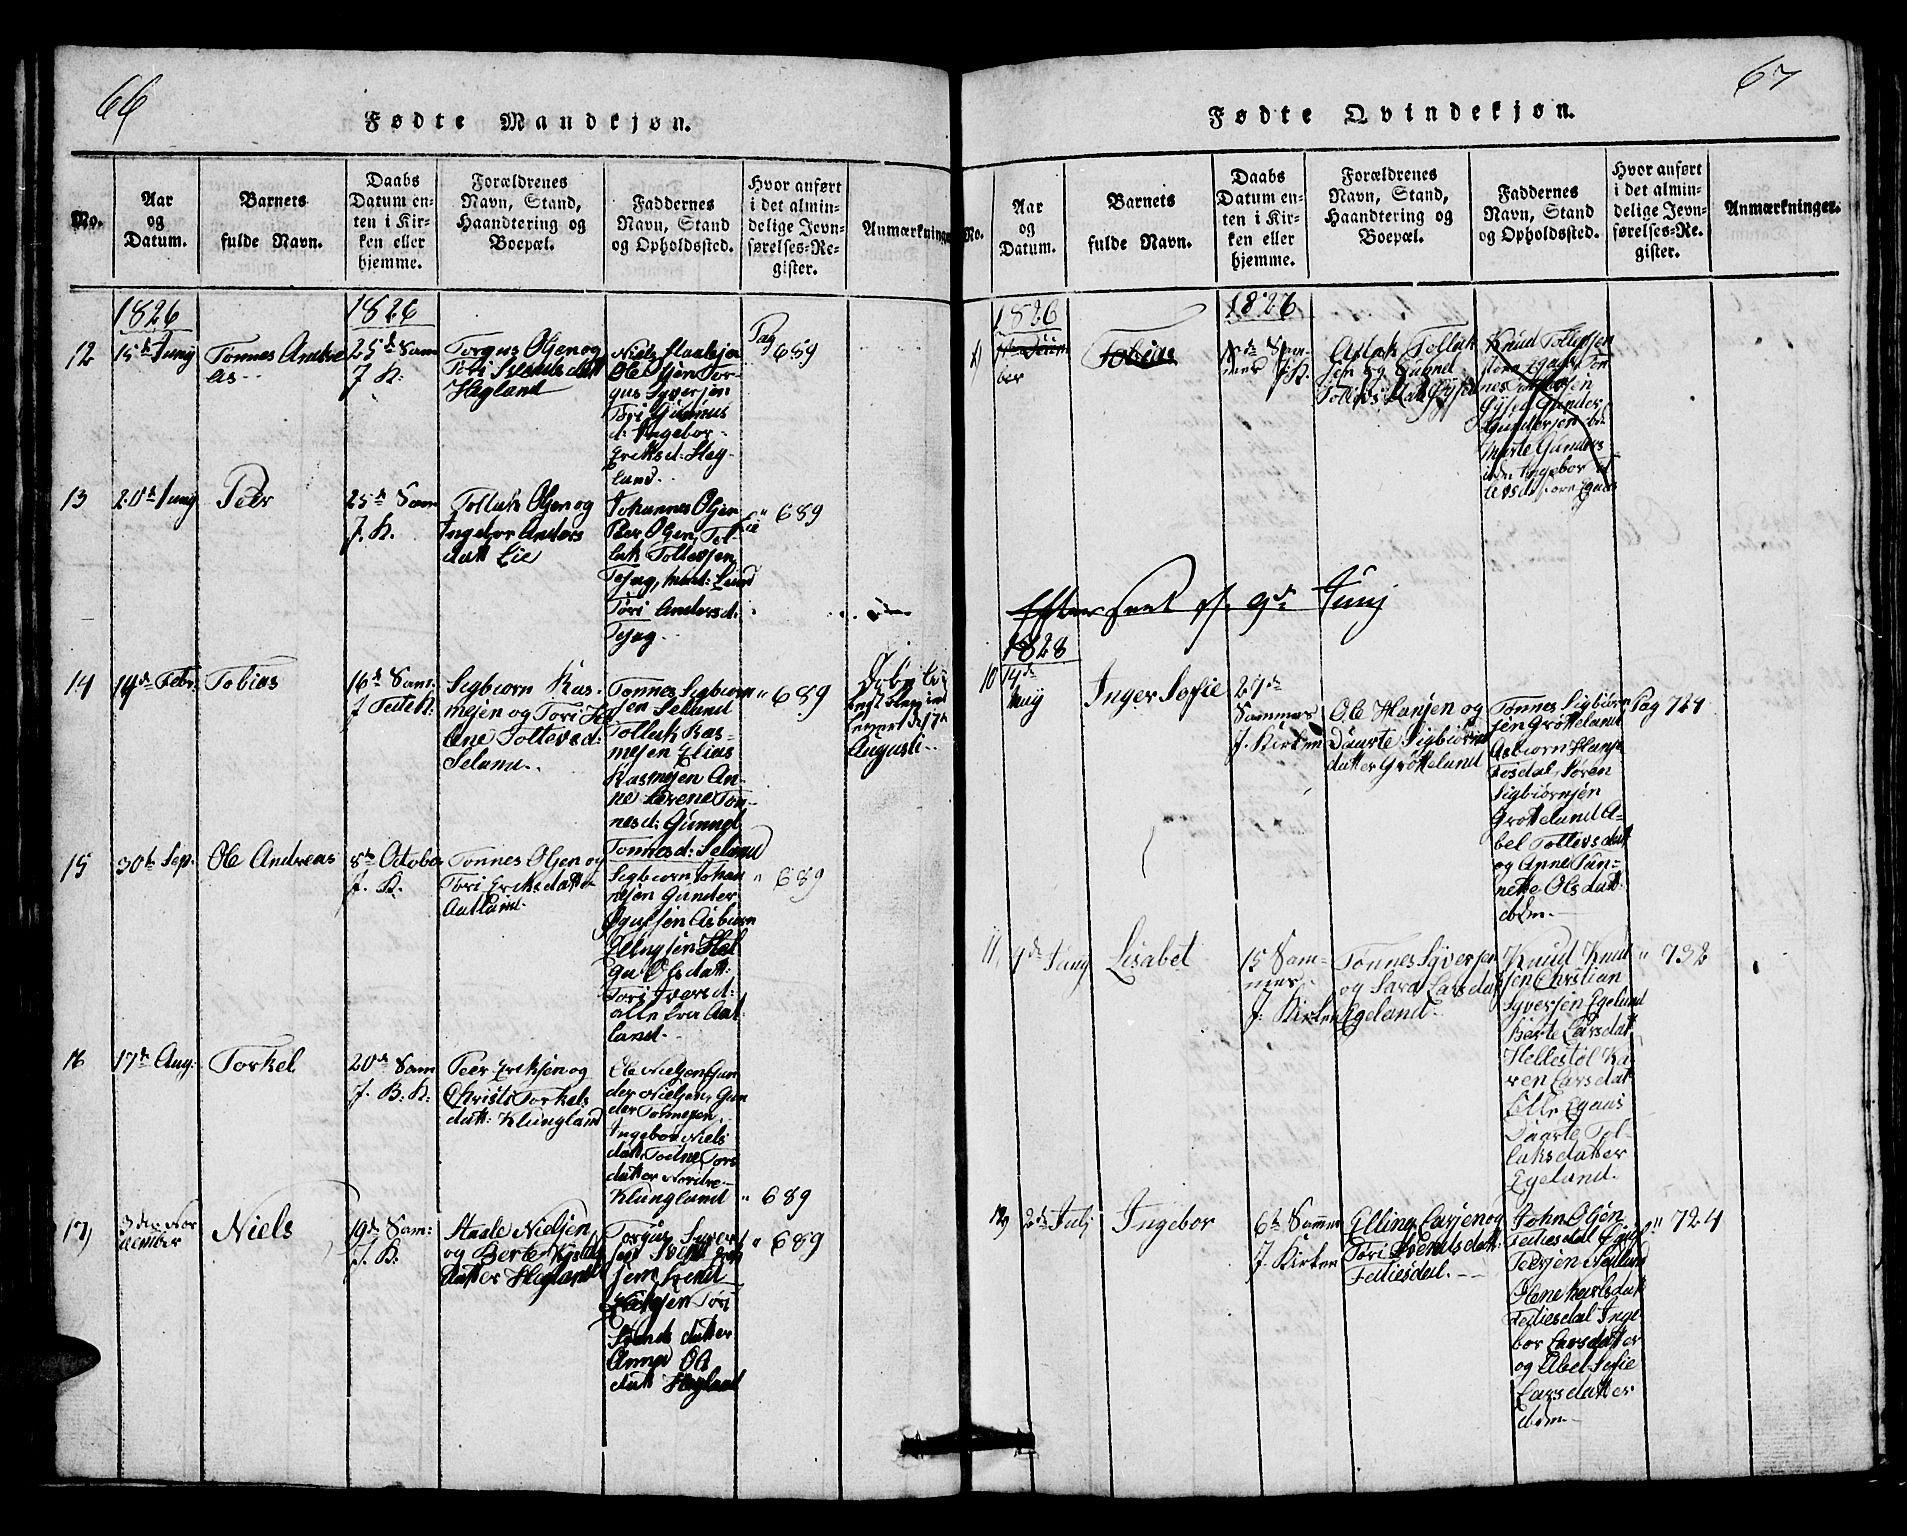 66
Fødte Mandkjøn.
No.
Aar
og
Datum.
Barnets
fulde Navn.
Daabs
Datum en-
ten i Kir-
ken eller
hjemme.
Forældrenes
Navn, Stand,
Haandtering og
Boepæl.
Faddernes
Navn, Stand
og Opholdssted.
Hvor anført
i det almin-
delige Jevn-
førelses-Re-
gister.
Anmærkninger
1826
1826
12
15de Junij
Tønnes Andre
as
25de Sam
J K:
Torgus Olsen og
Tori Svends datt
Hegland
Niels Staalesen
Ole Olsen Tor-
gus Syversen
Tori Gunnus
d: Ingebor
Eriksd: Heg-
land.
Pag
689
13
20de Junij
Peer
25de Sam
J. K.
Tollak Olsen og
Ingebor Anders
datt Lie
Johannes Olsen
Peer Olsen, Tol-
lak Tollevsen
Lie
Tori Andersd:
" 689
14
14de Febr:
Tobias
16de Sam:
J Feste K:
Sigbiorn Ras-
mesen og Tori
Tollevsd:
Selund.
Tønnes Sigbiorn
sen Selund
Tollak Ras-
mesen Elias
Rasmesen An-
ne Serene Ton-
nesd: Gunnel
Tonnesd: Selund
" 689
Augusti
15
30te Sep.
Ole Andreas
8de October
J. K.
Tonnes Olsen og
Tori Eriksdatter
Aatland.
Sigbiorn Johan
nesen Gunder
Asbiorn
Ellingsen Hel
ga Olsdatt:
Tori Iversd:
alle fra Aat-
land.
" 689
16
17de Aug:
Torkel
20de Sam
J. B. K.
Peer Eriksen og
Christi Torkels
datt: Klungland
Ole Nielsen Gun
der Nielsen, Gun
der Tonnesen
Ingebor Niels
datt, Todne Tors
datter Nordre
Klungland
" 689
17
3den Nov
vember
Niels
19de Sam:
J. K:
Staale Nielsen
og Berte
datter Hegland
Torgus Syvert
sen Svend
sen Svend
Tori
Svends datter
Anna Ols
datt Hegland
" 689
67
Fødte Qvindekjøn.
No.
Aar
og
Datum.
Barnets
fulde Navn.
Daabs
Datum en-
ten i Kir-
ken eller
hjemme.
Forældrenes
Navn, Stand,
Haandtering og
Boepæl.
Faddernes
Navn, Stand
og Opholdssted.
Hvor anført
i det almin-
delige Jevn-
førelses-Re-
gister.
Anmærkninger.
1826
1826
ber
Tobias
Aslak Tollak
sen og Gunild
Knud Tollefsen
Gysta Gunder
Gundersen
Marte Gunders
Ingebor
Efter seet d. 9de Junij
1828
10
14de
Maij
Inger Sofie
24de
Sammes
J. Kirken
Ole Hansen og
Daarte Sigbiørns
datter Grotteland
Tonnes Sigbiørn
sen Grotteland
Asbiorn Hanse
Fosdal, Søren
Sigbiørnsen
Grotteland A-
bel Tollevsdatt
og Anne Jan-
nette Olsdatt
ibdm.
Pag 724
11.
1de Junij
Lisabet
15 Sam-
mes
J. Kirken
Tonnes Syversen
og Sara Larsdatt
Egeland.
Knud Knud
sen Christian
Syversen Egeland
Berte Larsdatt
Hellestøl Ka-
ren Larsdatt
Daarte Tol-
laksdatter
Egeland.
" 732
12
2de Julj
Ingebor
6te Samme
J. Kirken
Elling Larsen og
Tori Svendsdatt:
Fediesdal.
John Olsen
Fediesdal
Peersen
Olene Karlsdatt
Fediesdal Inge-
bor Larsdatter
og Abel Sofie
Larsdatter
ibdm.
" 724